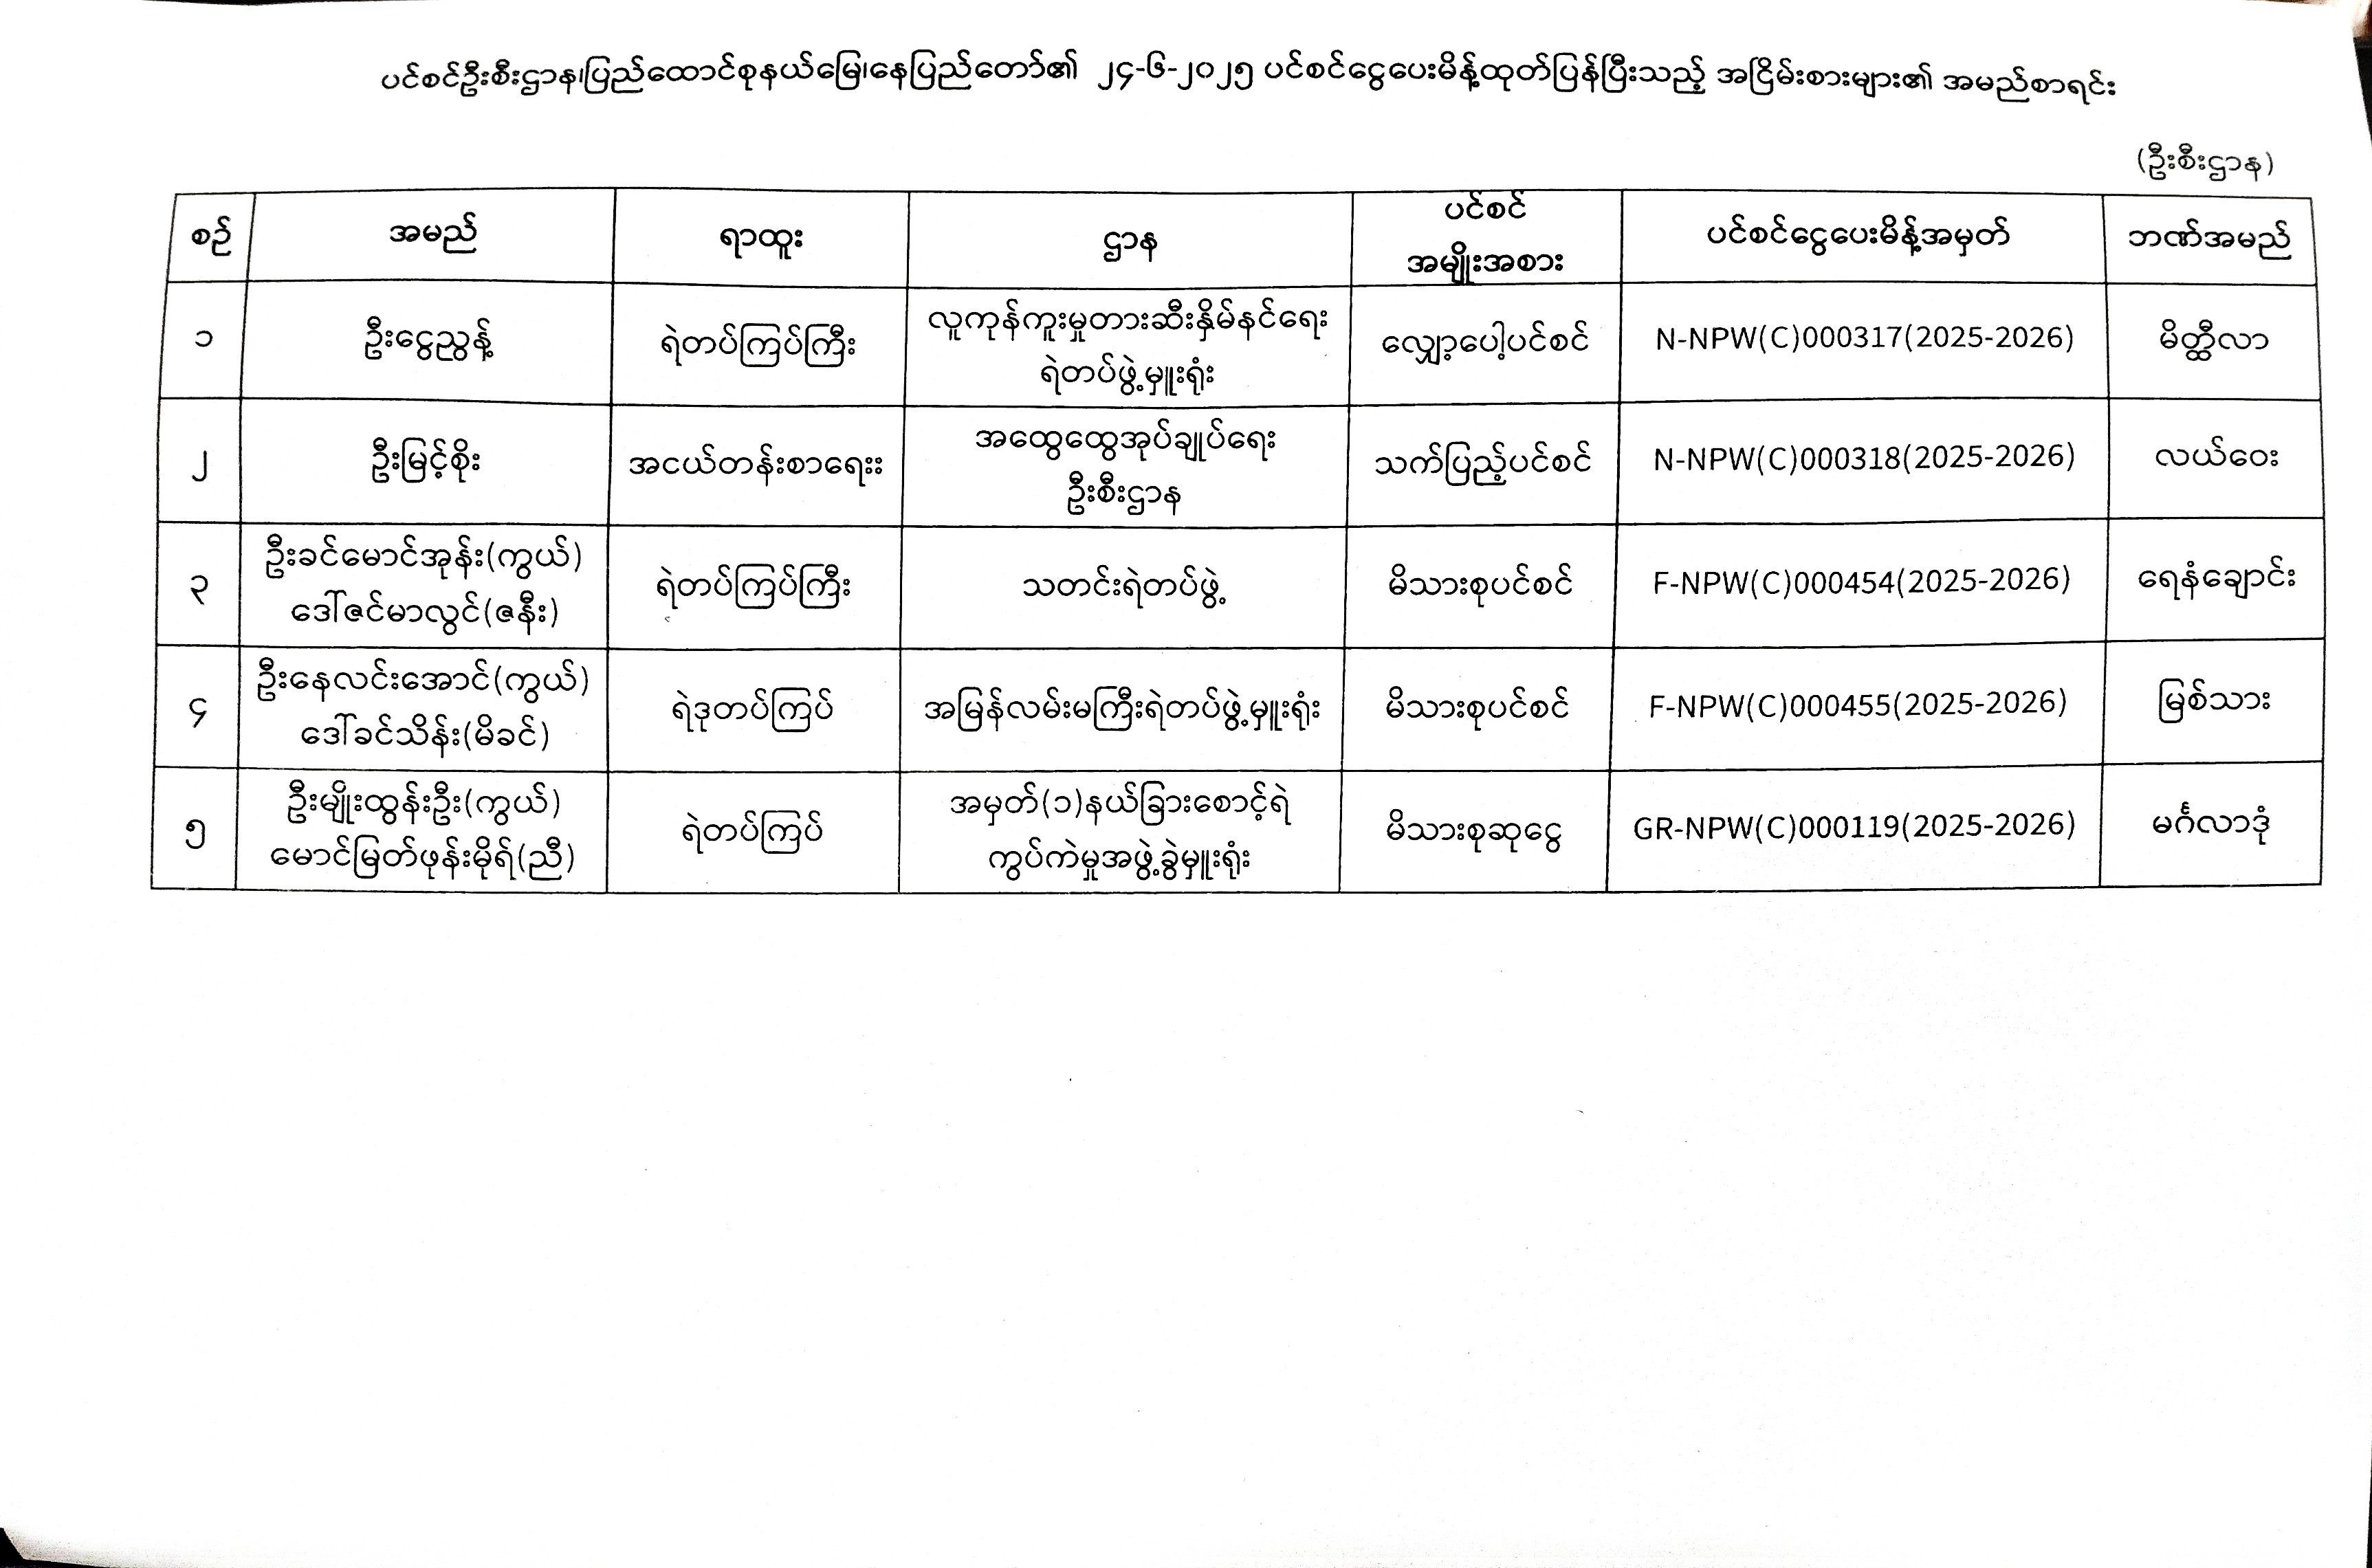 ပင်စင်ဦးစီးဌာန၊ပြည်ထောင်စုနယ်မြေ၊နေပြည်တော်၏ ၂၄-၆-၂၀၂၅ ပင်စင်ငွေပေးမိန့်ထုတ်ပြန်ပြီးသည့် အငြိမ်းစားများ၏ အမည်စာရင်း
(ဦးစီးဌာန)
စဉ် အမည် ရာထူး ဌာန ပင်စင် အမျိုးအစား ပင်စင်ငွေပေးမိန့်အမှတ် ဘဏ်အမည်
၁ ဦးငွေညွန့် ရဲတပ်ကြပ်ကြီး လူကုန်ကူးမှုတားဆီးနှိမ်နင်ရေး ရဲတပ်ဖွဲ့မှူးရုံး လျှော့ပေါ့ပင်စင် N-NPW(C)000317(2025-2026) မိတ္ထီလာ
၂ ဦးမြင့်စိုး အငယ်တန်းစာရေးး အထွေထွေအုပ်ချုပ်ရေး ဦးစီးဌာန သက်ပြည့်ပင်စင် N-NPW(C)000318(2025-2026) လယ်ဝေး
၃ ဦးခင်မောင်အုန်း(ကွယ်) ဒေါ်ဇင်မာလွင်(ဇနီး) ရဲတပ်ကြပ်ကြီး သတင်းရဲတပ်ဖွဲ့ မိသားစုပင်စင် F-NPW(C)000454(2025-2026) ရေနံချောင်း
၄ ဦးနေလင်းအောင်(ကွယ်) ဒေါ်ခင်သိန်း(မိခင်) ရဲဒုတပ်ကြပ် အမြန်လမ်းမကြီးရဲတပ်ဖွဲ့မှူးရုံး မိသားစုပင်စင် F-NPW(C)000455(2025-2026) မြစ်သား
၅ ဦးမျိုးထွန်းဦး(ကွယ်) မောင်မြတ်ဖုန်းမိုရ်(ညီ) ရဲတပ်ကြပ် အမှတ်(၁)နယ်ခြားစောင့်ရဲ ကွပ်ကဲမှုအဖွဲ့ခွဲမှူးရုံး မိသားစုဆုငွေ GR-NPW(C)000119(2025-2026) မင်္ဂလာဒုံ